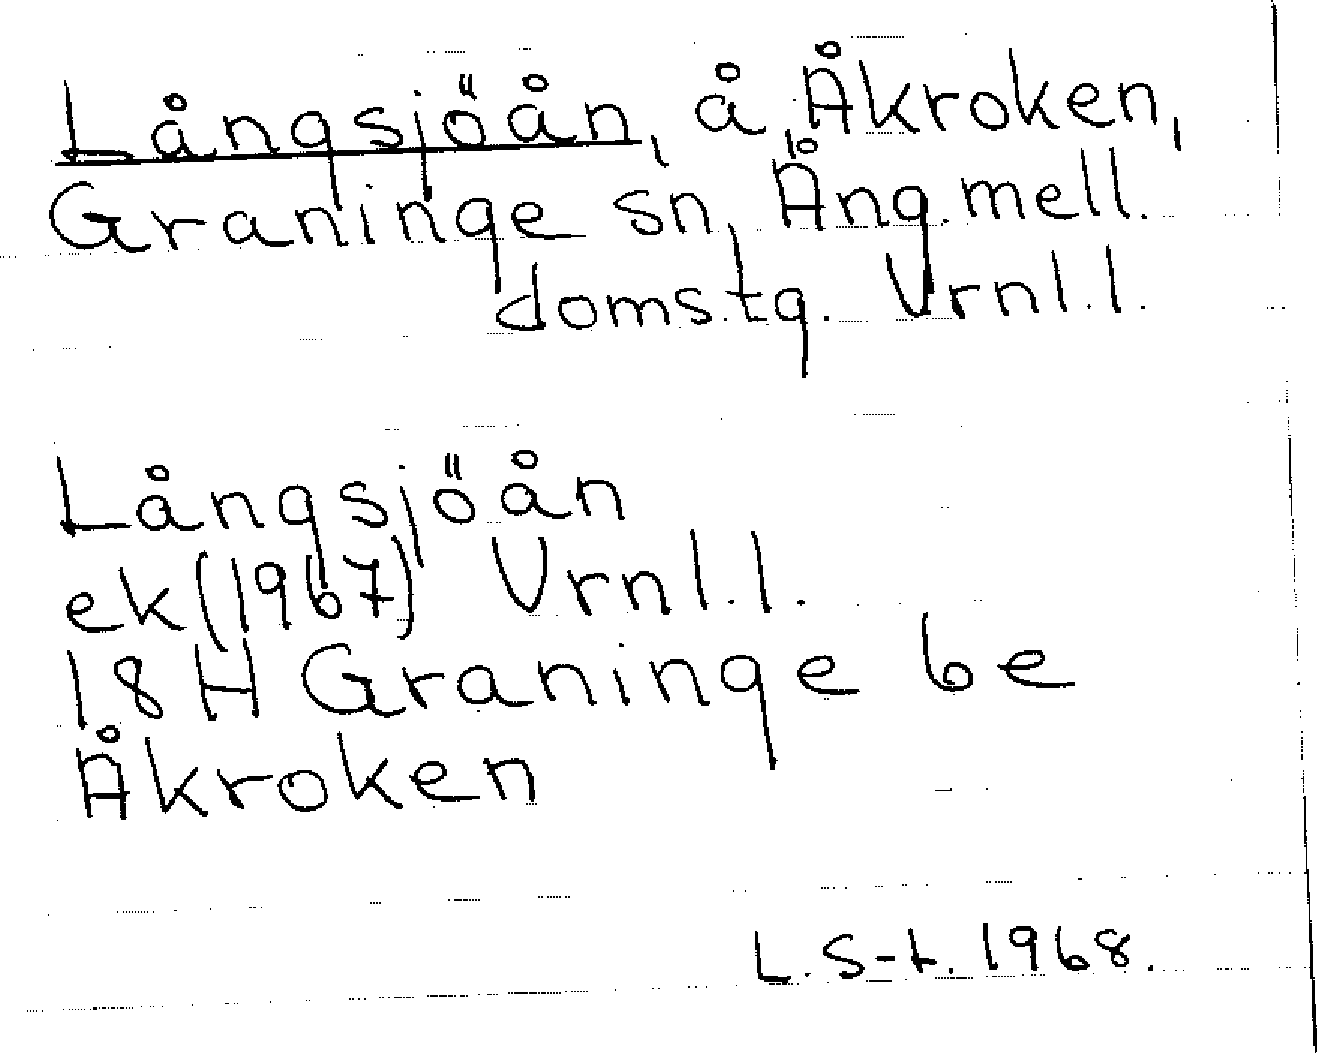 Långsjöån, å, Åkroken,
Graninge sn, Ång. mell.
doms.tg. Vrnl.l.
Långsjöån
ek (1967) Vrnl.l.
18H Graninge 6e
Åkroken
L. S-t. 1968.